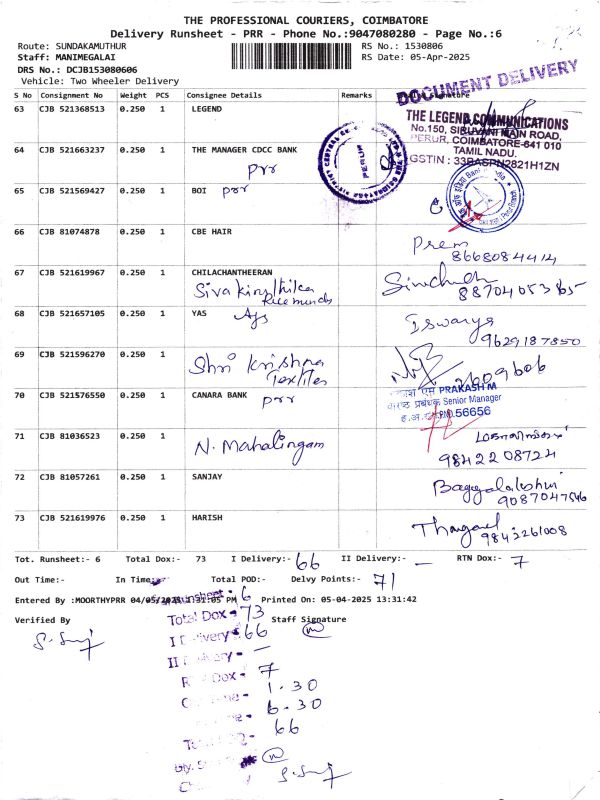 THE PROFESSIONAL COURIERS, COIMBATORE
Delivery Runsheet - PRR - Phone No.:9047080280 - Page No.:6
Route: SUNDAKAMUTHUR RS No.: 1530806
Staff: MANIMEGALAI RS Date: 05-Apr-2025
DRS No.: DCJB153080606
Vehicle: Two Wheeler Delivery
DOCUMENT DELIVERY
S No Consignment No Weight PCS Consignee Details Remarks Signature
63 CJB 521368513 0.250 1 LEGEND
THE LEGEND COMMUNICATIONS
No.150, SIRUVANI MAIN ROAD,
PERUR, COIMBATORE-641 010
TAMIL NADU.
GSTIN : 33BASPN2821H1ZN
64 CJB 521663237 0.250 1 THE MANAGER CDCC BANK
prr
PERUR
65 CJB 521569427 0.250 1 BOI prr
66 CJB 81074878 0.250 1 CBE HAIR
Prem
8668084414
67 CJB 521619967 0.250 1 CHILACHANTHEERAN
68 CJB 521657105 0.250 1 YAS
Iswarya
9629187850
69 CJB 521596270 0.250 1
Shri Krishna
Textiles
2609606
70 CJB 521576550 0.250 1 CANARA BANK
prr
PRAKASH M
वरिष्ठ प्रबंधक Senior Manager
56656
71 CJB 81036523 0.250 1
N. Mahalingam
98422 08724
72 CJB 81057261 0.250 1 SANJAY
73 CJB 521619976 0.250 1 HARISH
9843261008
Tot. Runsheet:- 6 Total Dox:- 73 I Delivery:- 66 II Delivery:- — RTN Dox:- 7
Out Time:- In Time:- Total POD:- Delvy Points:- 71
Entered By :MOORTHYPRR 04/05/2025 1:31:05 PM Printed On: 05-04-2025 13:31:42
Verified By Staff Signature
Runsheet - 6
Total Dox - 73
I Delivery - 66
II Delivery - —
Dox - 7
1.30
6.30
66